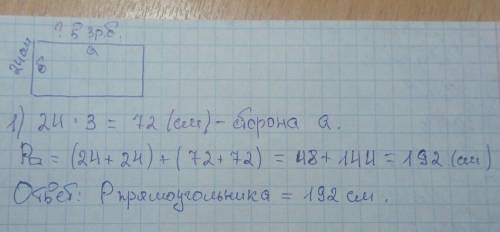 ? в 3р б.
a
24 см
в
1) 24 · 3 = 72 (см) – сторона a.
P = (24 + 24) + (72 + 72) = 48 + 144 = 192 (см)
Ответ: P прямоугольника = 192 см.